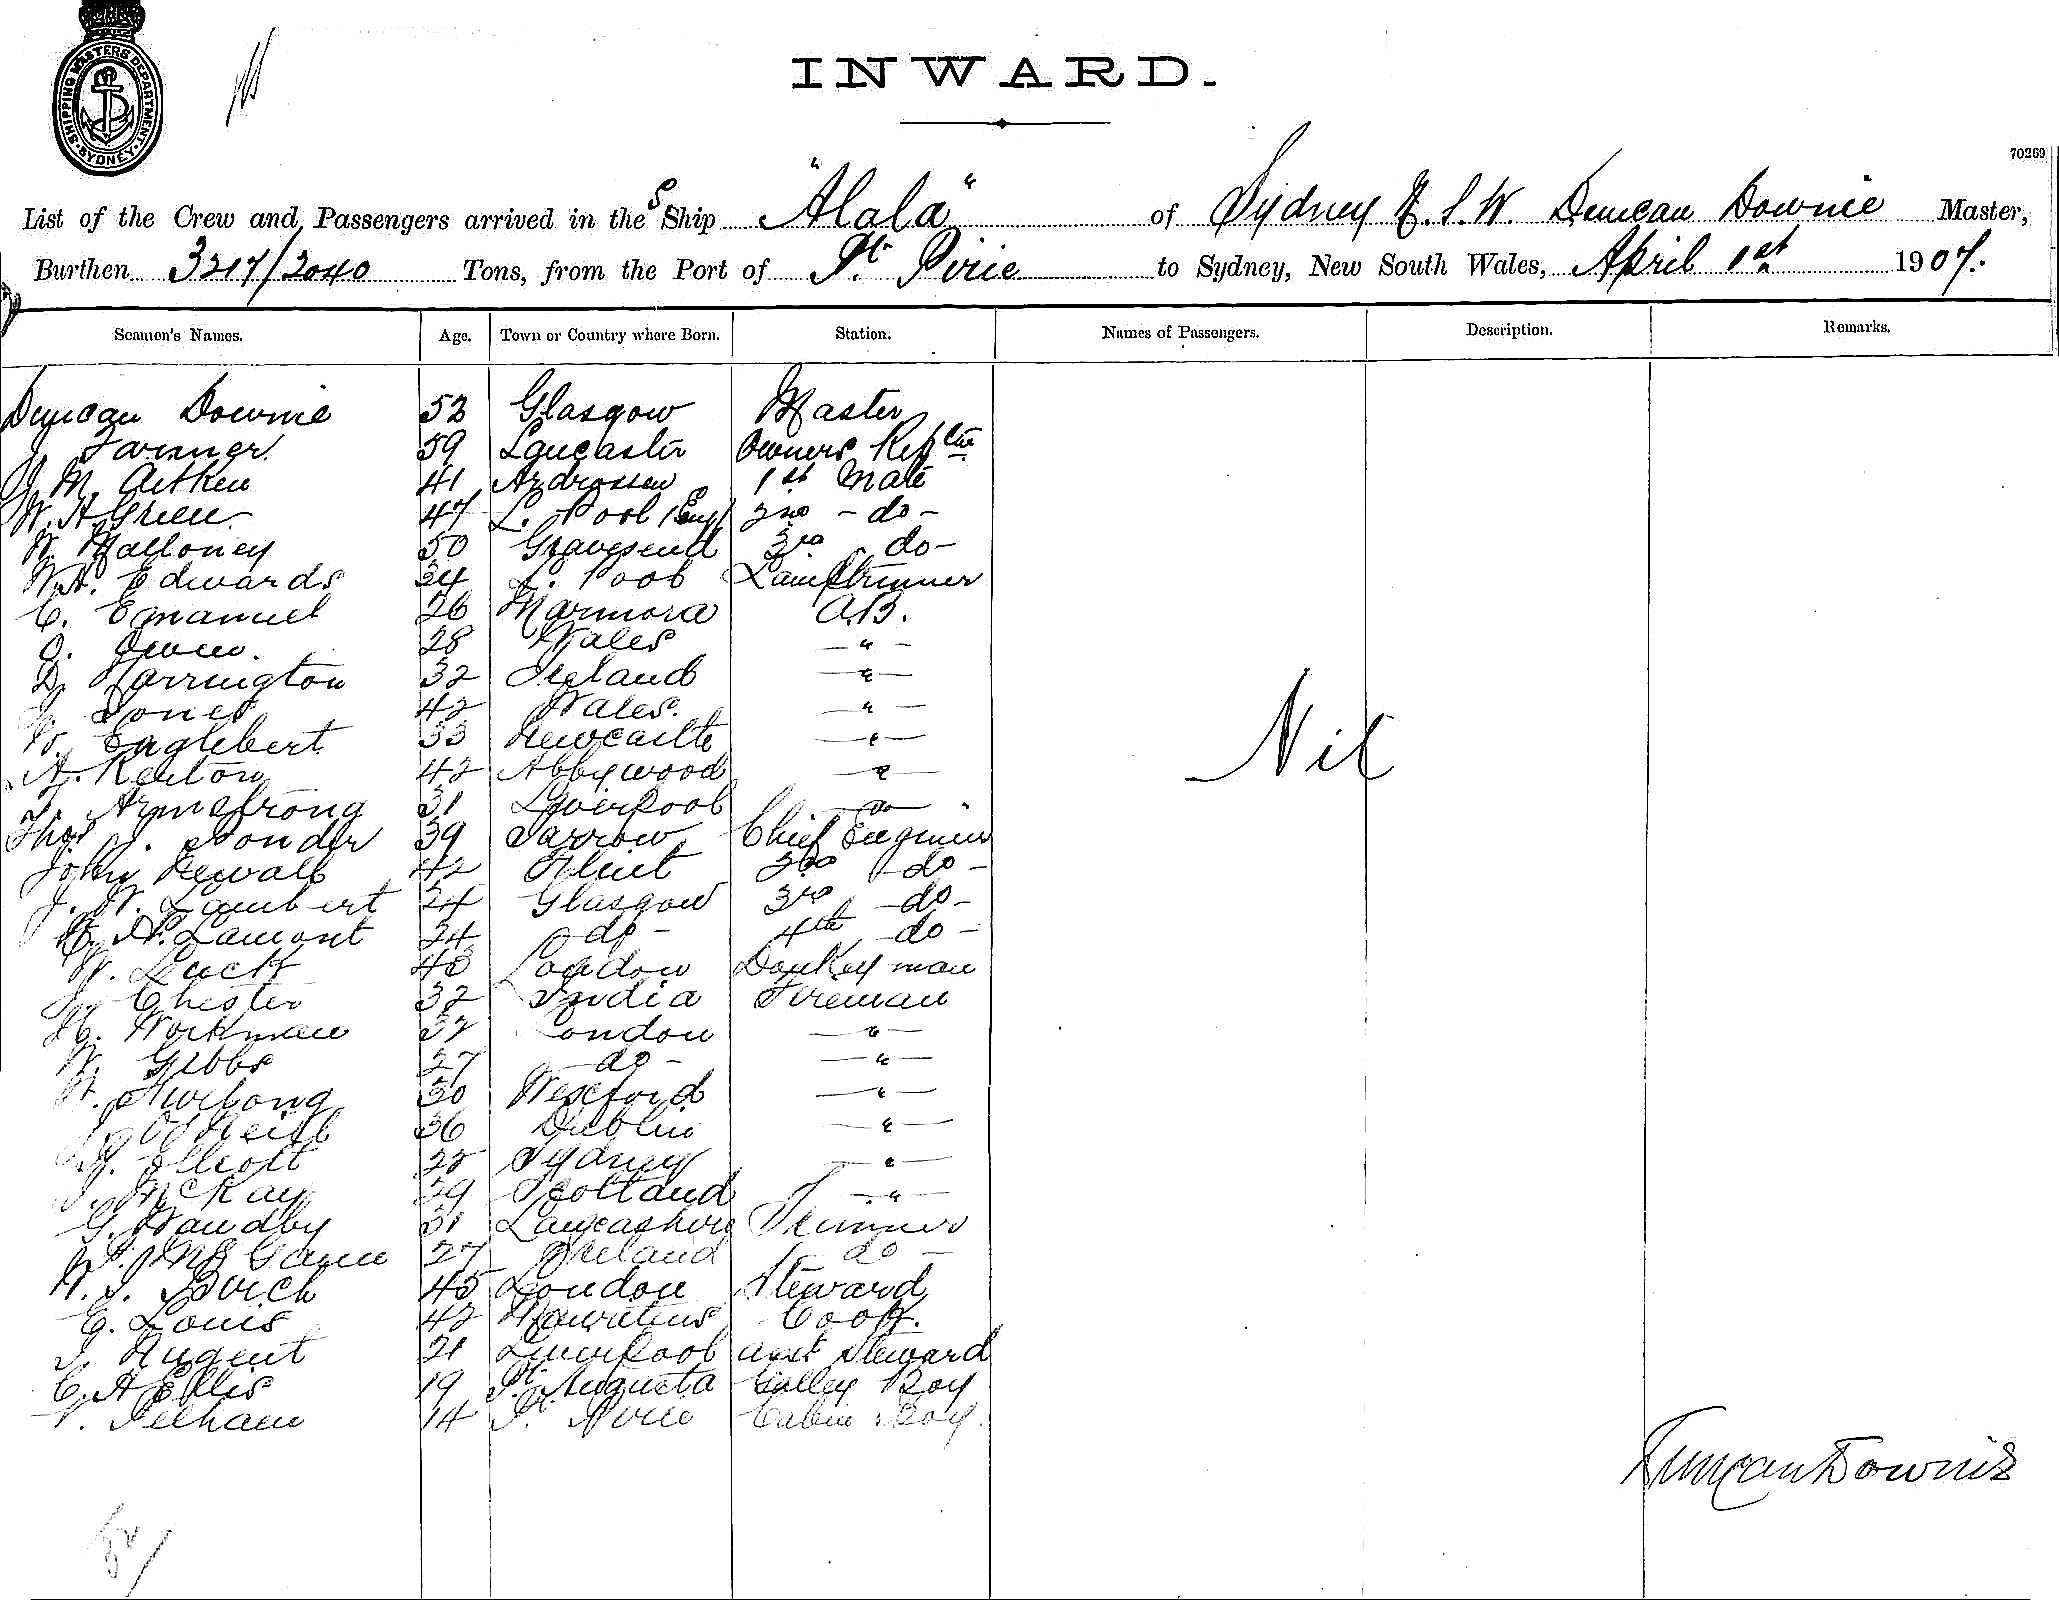 SHIPPING MASTERS DEPARTMENT. SYDNEY.
INWARD.
70269
List of the Crew and Passengers arrived in the S Ship "Alala" of Sydney N.S.W. Duncan Downie Master,
Burthen 3217/2040 Tons, from the Port of Pt. Pirie to Sydney, New South Wales, April 1st 1907.
Seamen's Names. Age. Town or Country where Born. Station. Names of Passengers. Description. Remarks.
Duncan Downie 52 Glasgow Master
59 Lancaster Owners
J M. Aitken 41 Ardrossan 1st Mate
W. H Green 47 L. Pool Eng 2nd - do -
W. Malloney 50 Gravesend 3rd do -
W.H. Edwards 34 L. Pool Lamptrimmer
C. Emanuel 26 Marmora A.B.
O. Owen. 28 Wales — " —
D. Harrington 32 Ireland — " —
J. Jones 42 Wales. — " —
W. Englebert 33 Newcastle — " —
A. Renton 42 Abbywood — " —
Armstrong 31 Liverpool — do —
Thos J. 39 Jarrow Chief Engineer
John Newall 42 Flint 2nd - do -
J. W. Lambert 24 Glasgow 3rd - do -
A. Lamont 24 - do - 4th - do -
W. Luck London Donkeyman
Chester 32 India Fireman
H. Workman 32 London — " —
W. Gibbs 27 - do - — " —
W. Furlong 30 Wexford — " —
J. O'Neill 36 Dublin — " —
Elliott Sydney — " —
J. McKay 39 Scotland — " —
G. Wandby 31 Lancashire Trimmer
27 Ireland - do -
45 London Steward
E. Louis 42 Mauritius Cook.
J. Nugent 21 Liverpool asst Steward
C. H Ellis 19 Pt. Augusta Galley Boy
Pelham 14 Pt. Pirie Cabin Boy.
Nil
Duncan Downie